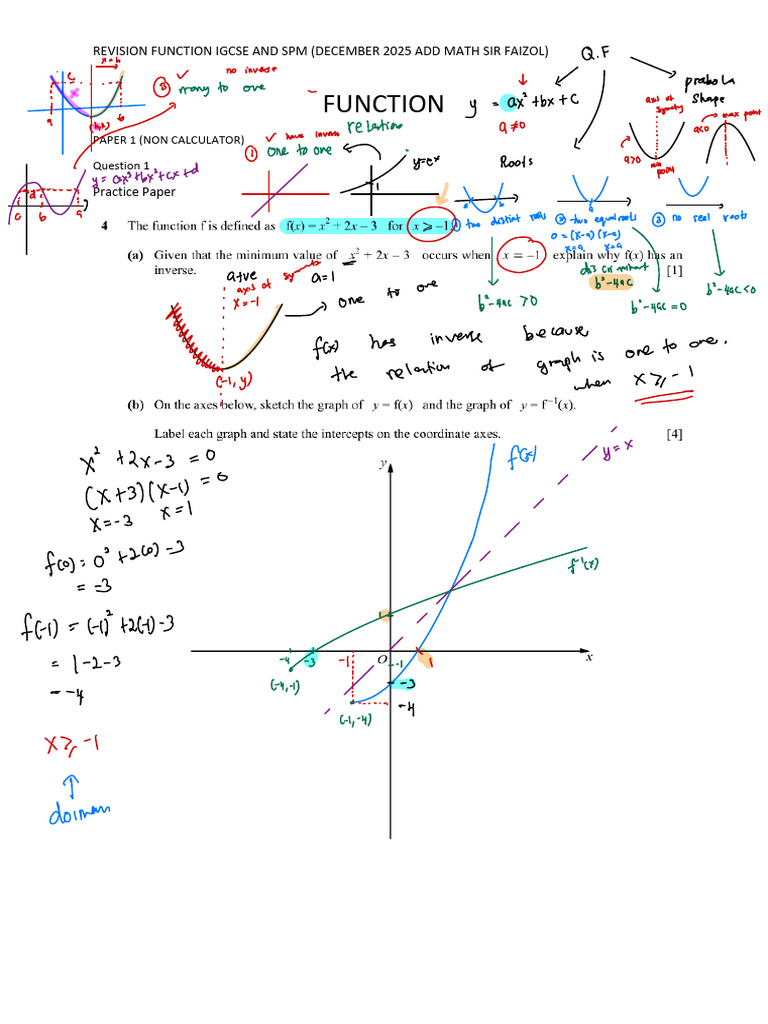 REVISION FUNCTION IGCSE AND SPM (DECEMBER 2025 ADD MATH SIR FAIZOL)
Q.F
x=h
c
a
b
(h,k)
② ✓ no inverse
many to one
FUNCTION
y = ax² + bx + c
a≠0
prabola
shape
axis of symetry
a>0
min point
a<0
max point
PAPER 1 (NON CALCULATOR)
Question 1
y = ax³+bx²+cx+d
Practice Paper
d
c b a
① ✓ have inverse
one to one
relation
y=eˣ
1
Roots
a b
① two distint roots
b²-4ac > 0
a
② two equal roots
0 = (x-a)(x-a)
x=a x=a
b²-4ac = 0
③ no real roots
b²-4ac < 0
b²-4ac
4 The function f is defined as f(x) = x² + 2x – 3 for x ⩾ –1.
(a) Given that the minimum value of x² + 2x – 3 occurs when x = –1 explain why f(x) has an
inverse. [1]
a+ve
axis of symetry
x=-1
a=1
one to one
(-1, y)
f(x) has inverse because
the relation of graph is one to one.
when x ⩾ -1
(b) On the axes below, sketch the graph of y = f(x) and the graph of y = f⁻¹(x).
Label each graph and state the intercepts on the coordinate axes. [4]
x² + 2x - 3 = 0
(x+3)(x-1) = 0
x=-3 x=1
f(0) = 0² + 2(0) - 3
= -3
f(-1) = (-1)² + 2(-1) - 3
= 1-2-3
= -4
x ⩾ -1
doiman
y
f(x)
y=x
f⁻¹(x)
1
-4 -3 -1 O -1 1 x
(-4,-1)
-3
(-1,-4)
-4